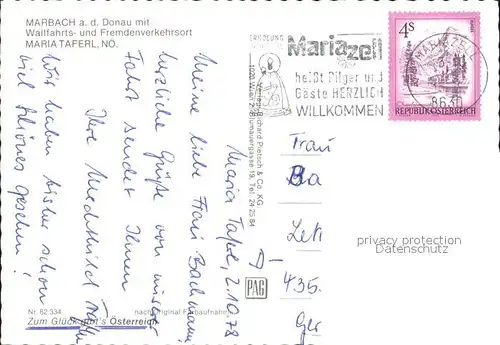 MARBACH a. d. Donau mit
Wallfahrts- und Fremdenverkehrsort
MARIA TAFERL, NÖ.
Maria Taferl, 2.10.78
Meine liebe Frau Bachmann!
herzliche Grüße von unserer
Fahrt sendet Ihnen
Ihre Mechthild
Wir haben bisher schon
viel Schönes gesehen!
Nr. 62 334
nach Original-Farbaufnahme
Zum Glück gibt's Österreich
Verlag Richard Pietsch & Co. KG
1020 Wien, Blumauergasse 19, Tel. 24 25 84
PAG
ERHOLUNG
Mariazell
heißt Pilger und
Gäste HERZLICH
WILLKOMMEN
4S
REPUBLIK ÖSTERREICH
8630
Frau
Ba
D-
435
Ger
privacy protection
Datenschutz